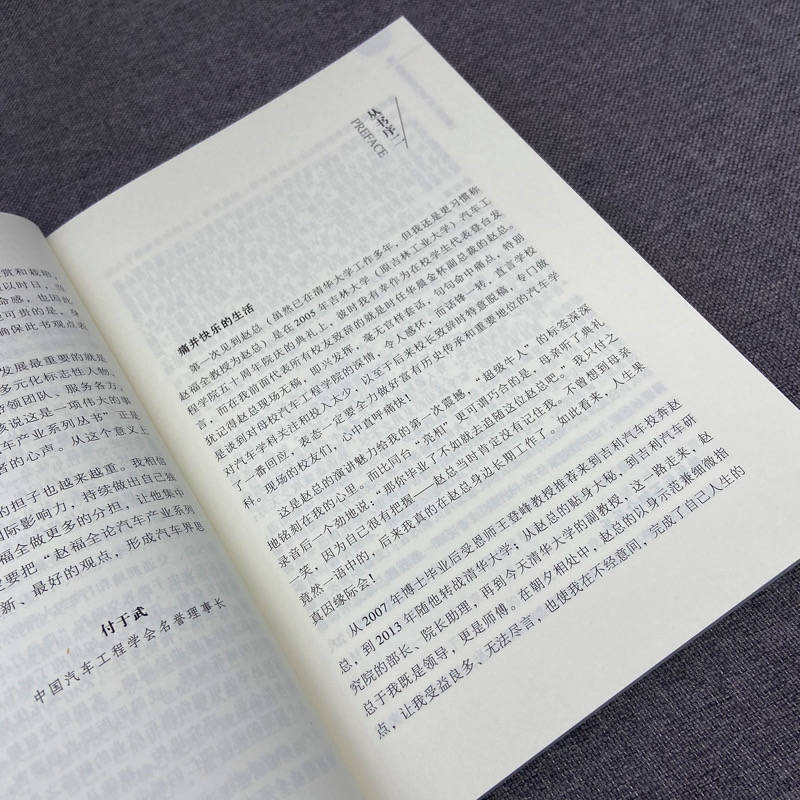 赏和栽培，
以时日，当
命感，也因此
可贵的是，身
确保此书观点表
发展最重要的就是
多元化标志性人物，
带领团队、服务各方，
该说这是一项伟大的事
车产业系列丛书”正是
者的心声。从这个意义上
的担子也越来越重。我相信
国际影响力，持续做出自己独
福全做更多的分担，让他集中
定要把“赵福全论汽车产业系列
新、最好的观点，形成汽车界思
付于武
中国汽车工程学会名誉理事长
丛书序二
PREFACE
痛并快乐的生活
第一次见到赵总（虽然已在清华大学工作多年，但我还是更习惯称
赵福全教授为赵总）是在2005年吉林大学（原吉林工业大学）汽车工
程学院五十周年院庆的典礼上，彼时我有幸作为在校学生代表登台发
言，而在我前面代表所有校友致辞的就是时任华晨金杯副总裁的赵总。
犹记得赵总现场无稿，即兴发挥，毫无官样套话，句句命中痛点，特别
是谈到对母校汽车工程学院的深情，令人感怀，而话锋一转，直言学校
对汽车学科关注和投入太少，以至于后来校长致辞时特意脱稿，专门做
了一番回应，表态一定要全力做好富有历史传承和重要地位的汽车学
科。现场的校友们，心中直呼痛快！
这是赵总的演讲魅力给我的第一次震撼，“超级牛人”的标签深深
地铭刻在我的心里。而比同台“亮相”更可谓巧合的是，母亲听了典礼
录音后一个劲地说：“那你毕业了不如就去追随这位赵总吧。”我只付之
一笑，因为自己很有把握——赵总当时肯定没有记住我。不曾想到母亲
竟然一语中的，后来我真的在赵总身边长期工作了。如此看来，人生果
真因缘际会！
从2007年博士毕业后受恩师王登峰教授推荐来到吉利汽车投奔赵
总，到2013年随他转战清华大学；从赵总的贴身大秘，到吉利汽车研
究院的部长、院长助理，再到今天清华大学的副教授，这一路走来，赵
总于我既是领导，更是师傅。在朝夕相处中，赵总的以身示范兼细微指
点，让我受益良多、无法尽言，也使我在不经意间，完成了自己人生的